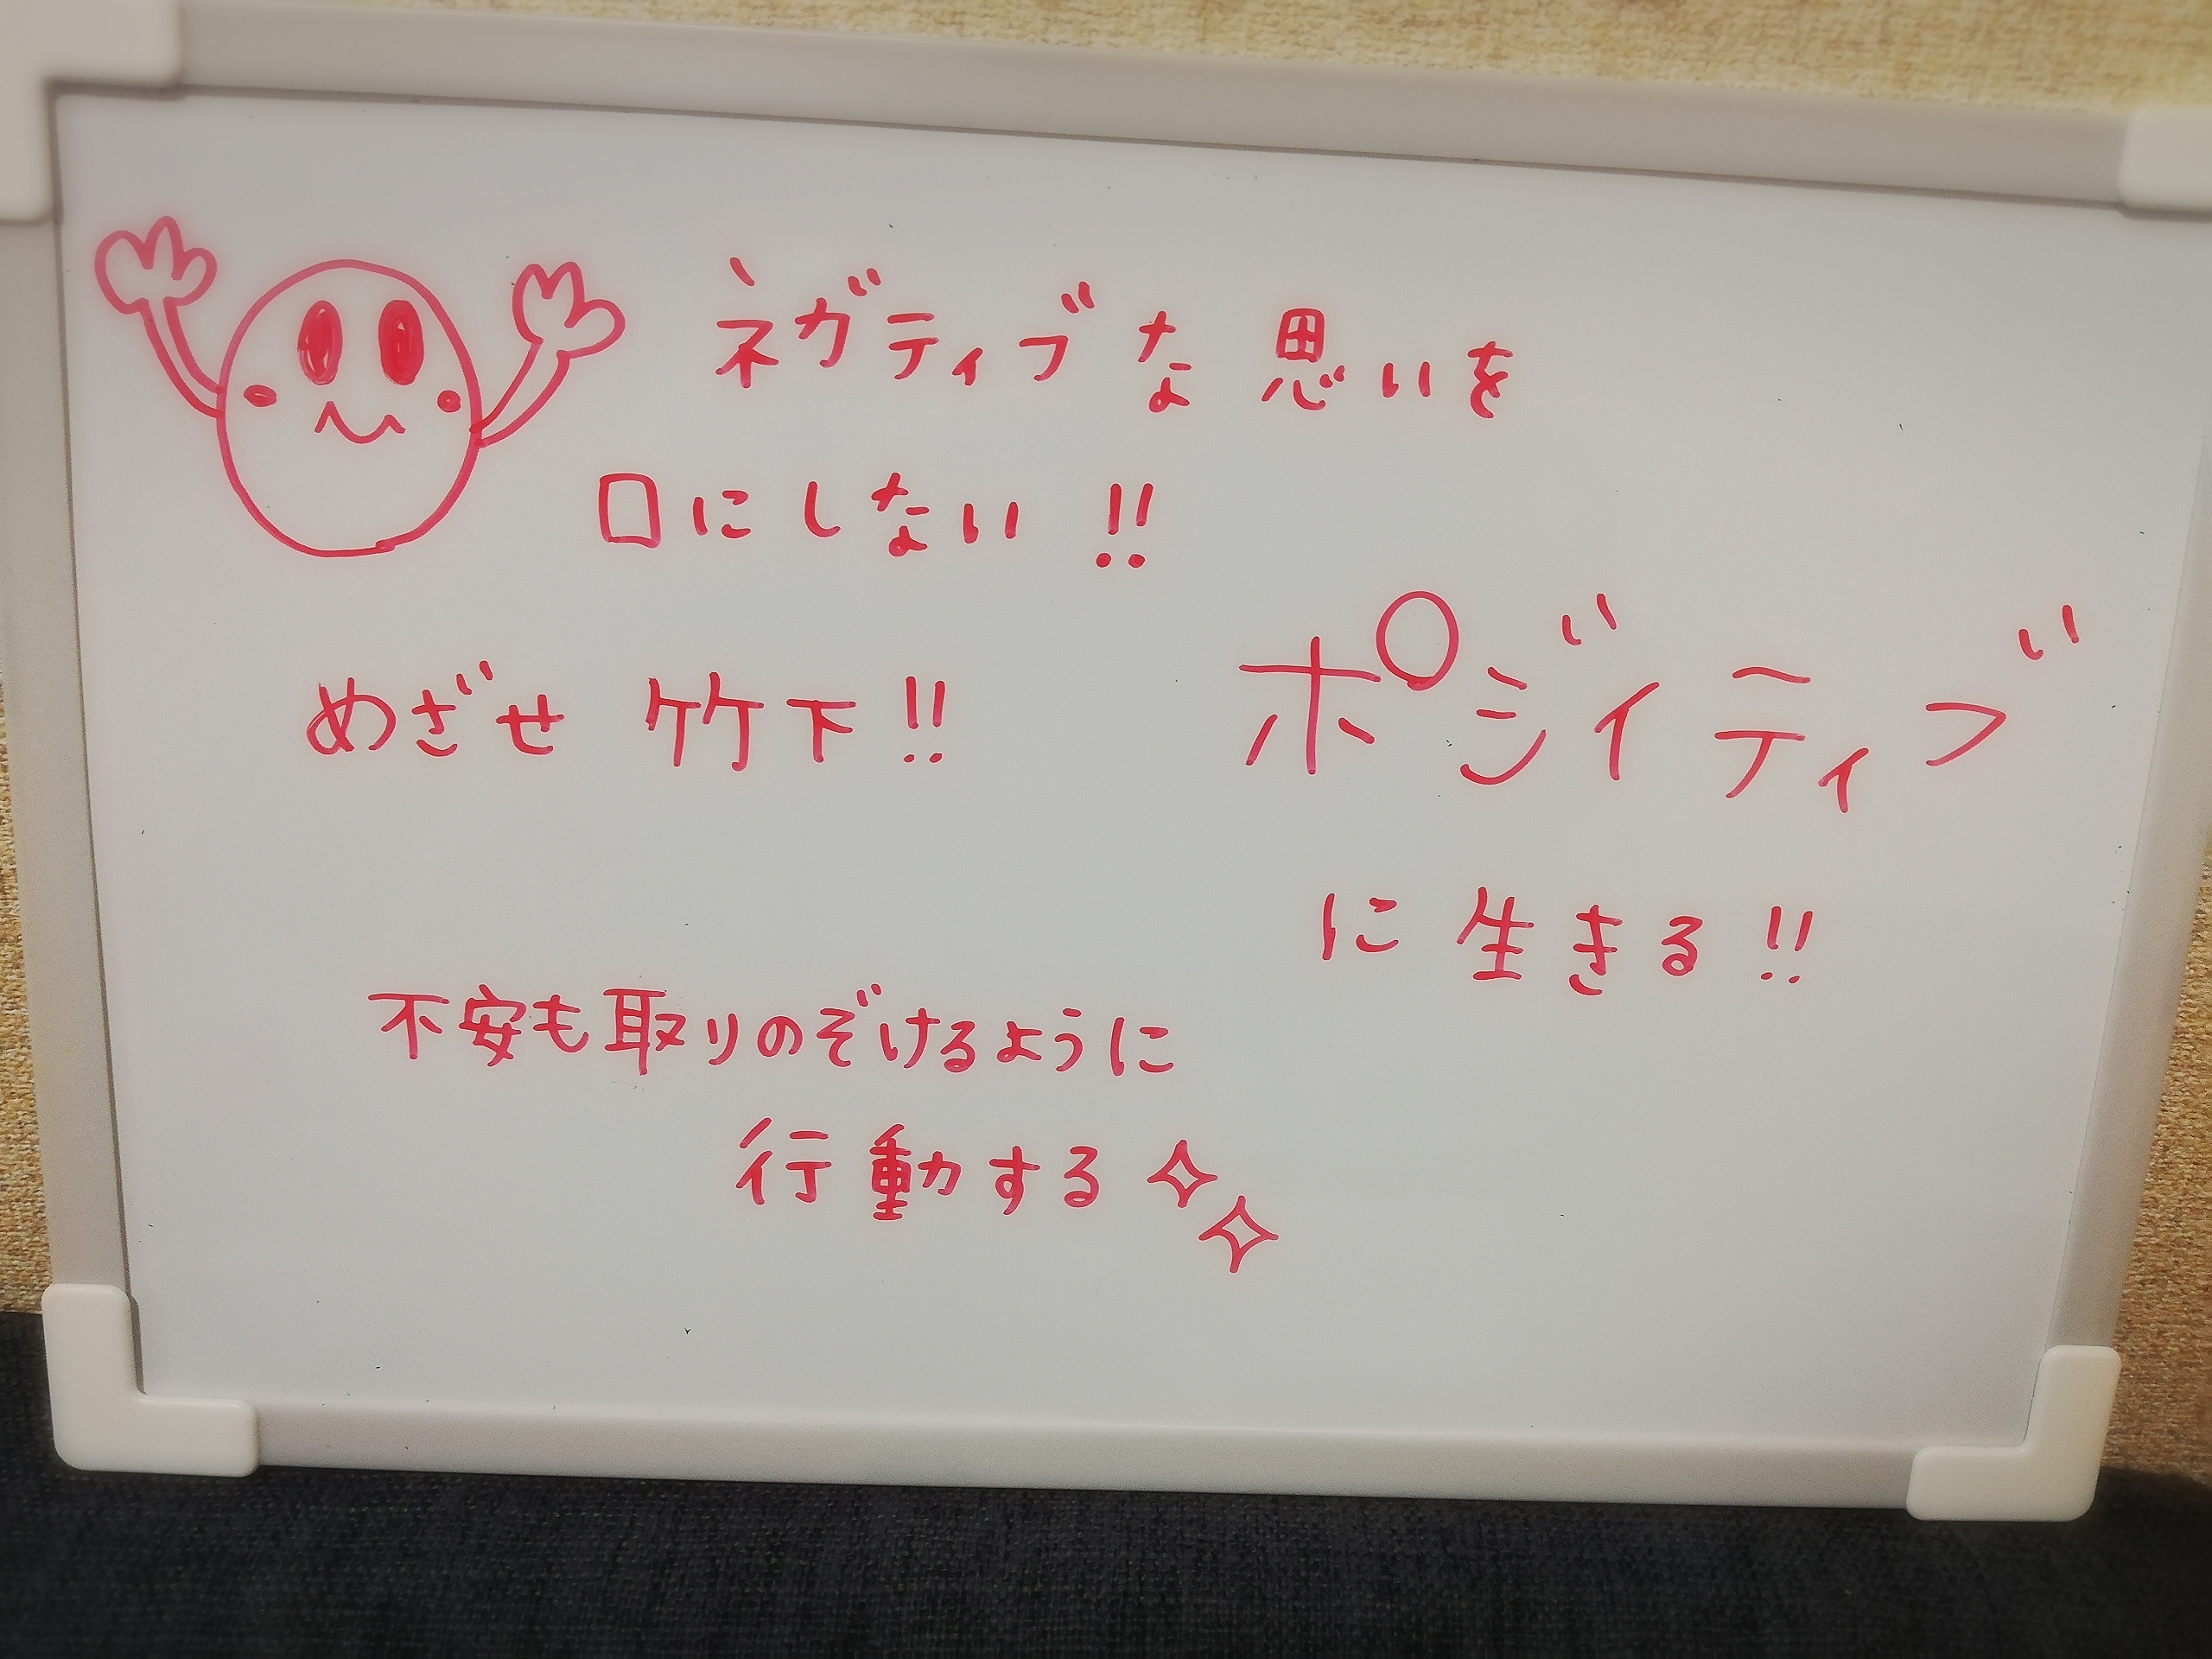 ネガティブな思いを
口にしない!!
めざせ 竹下!!
ポジイティブ
に生きる!!
不安も取りのぞけるように
行動する